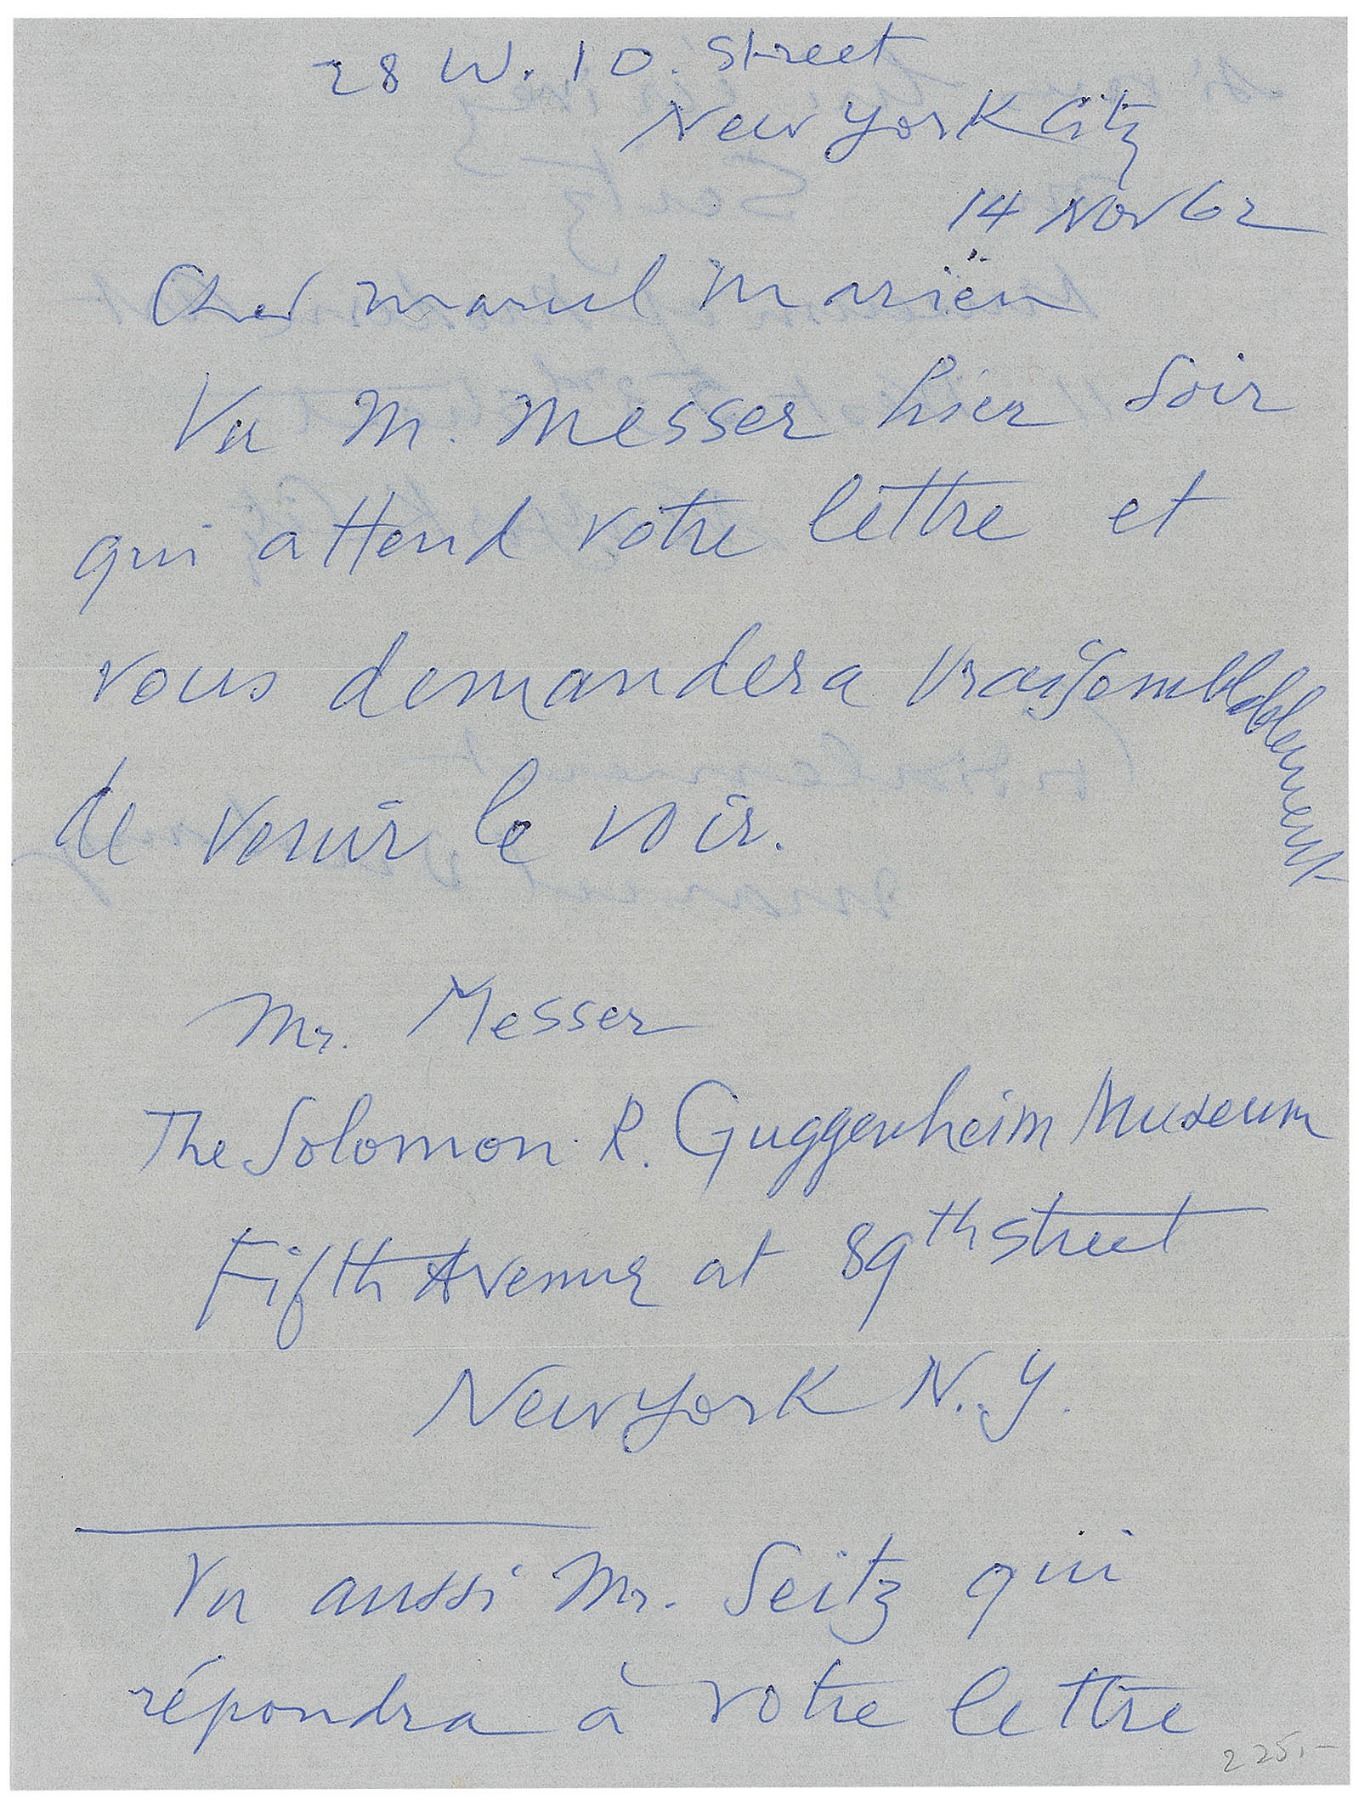 28 W. 10. Street
New York City
14 Nov 62
Cher Marcel Mariën
Vu M. Messer hier soir
qui attend votre lettre et
vous demandera vraisemblablement
de venir le voir.
Mr. Messer
The Solomon R. Guggenheim Museum
Fifth Avenue at 89th Street
New York N.Y.
Vu aussi Mr. Seitz qui
répondra à votre lettre
225,-